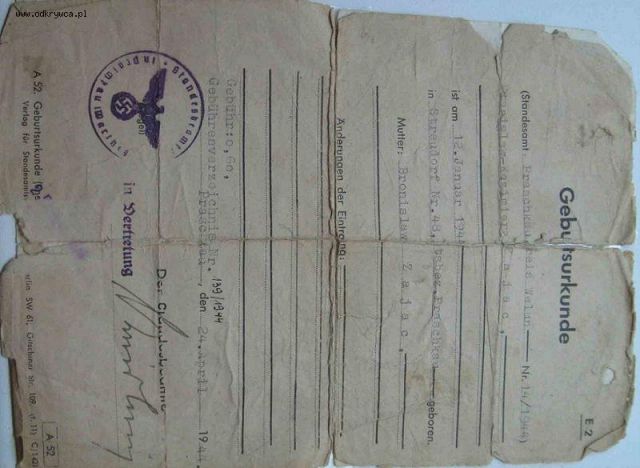 www.odkrywca.pl
E 2
Geburtsurkunde
(Standesamt Praschkau Kreis Welun Nr. 14/1944)
Zajac,
ist am 12. Januar 194
in Streudorf Nr. 48, Praschkau geboren.
Mutter: Bronislaw Zajac,
Änderungen der Eintragung:
Gebühr: 0,60,
Gebührenverzeichnis Nr. 139/1944
Praschkau, den 24. April 194
Der Standesbeamte
in Vertretung
A 52. Geburtsurkunde
Verlag für Standesamts
rlin SW 61, Gitschiner Str. 109.
A 52